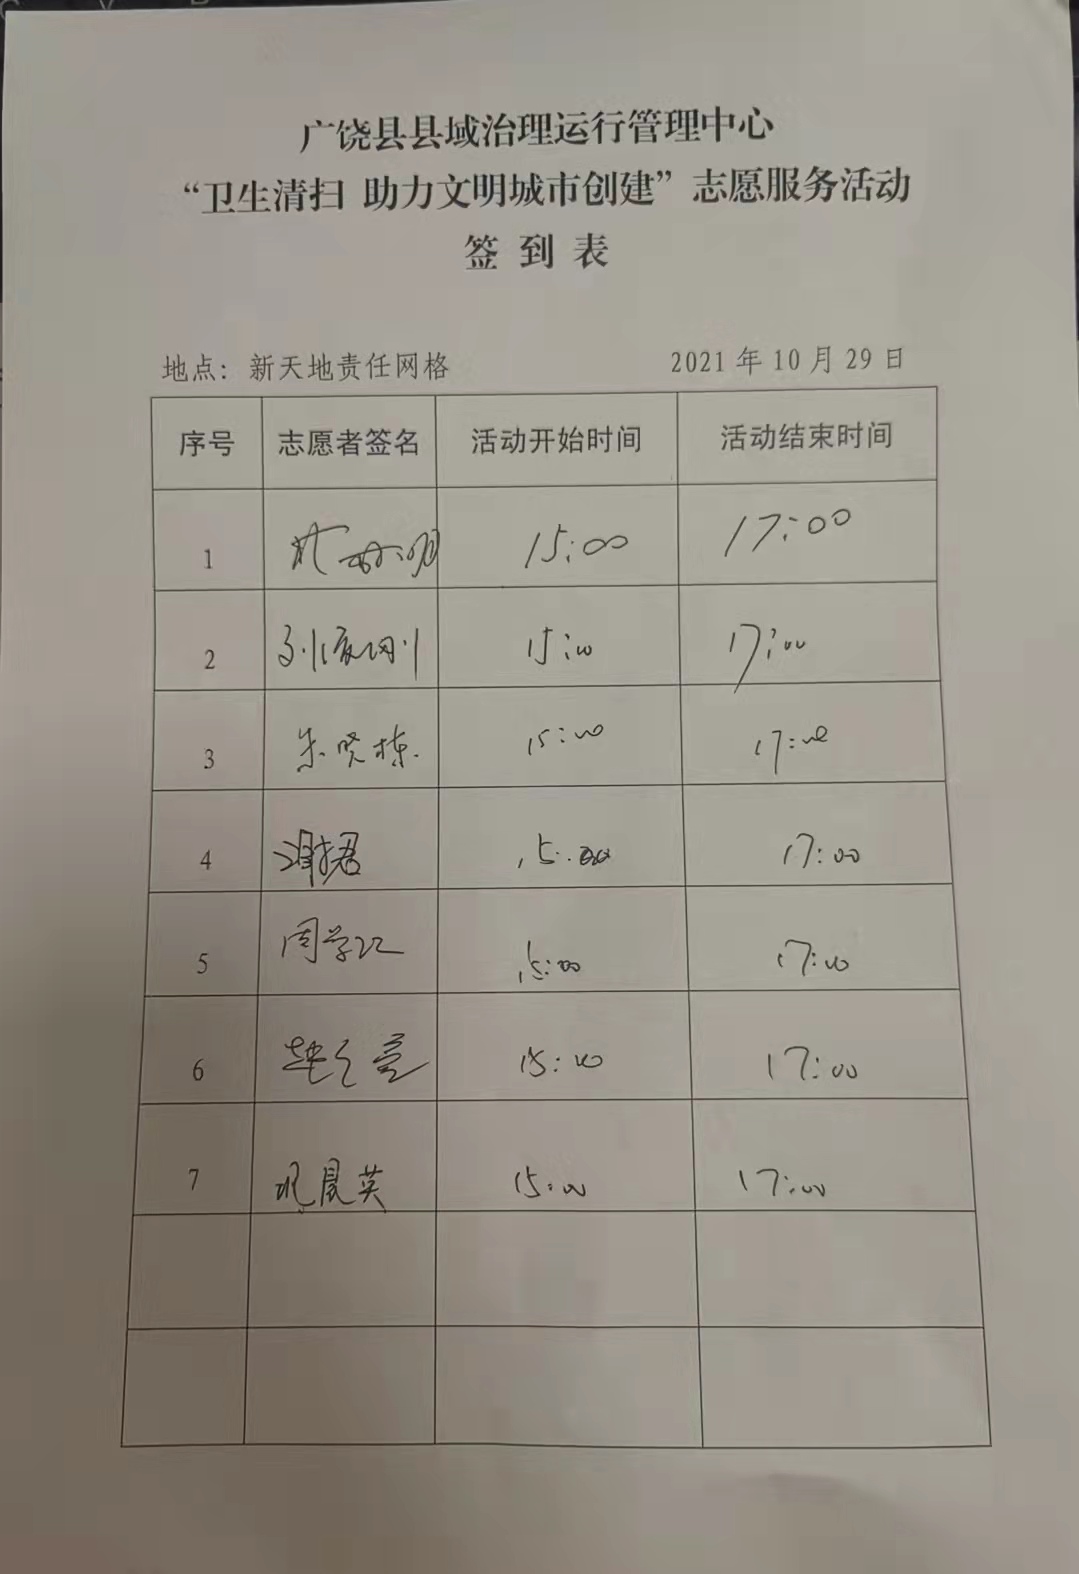 广饶县县域治理运行管理中心
“卫生清扫 助力文明城市创建”志愿服务活动
签 到 表
地点：新天地责任网格 2021 年 10 月 29 日
序号 志愿者签名 活动开始时间 活动结束时间
1 15:00 17:00
2 15:00 17:00
3 朱晓栋 15:00 17:00
4 15:00 17:00
5 周学 15:00 17:00
6 15:00 17:00
7 晨英 15:00 17:00